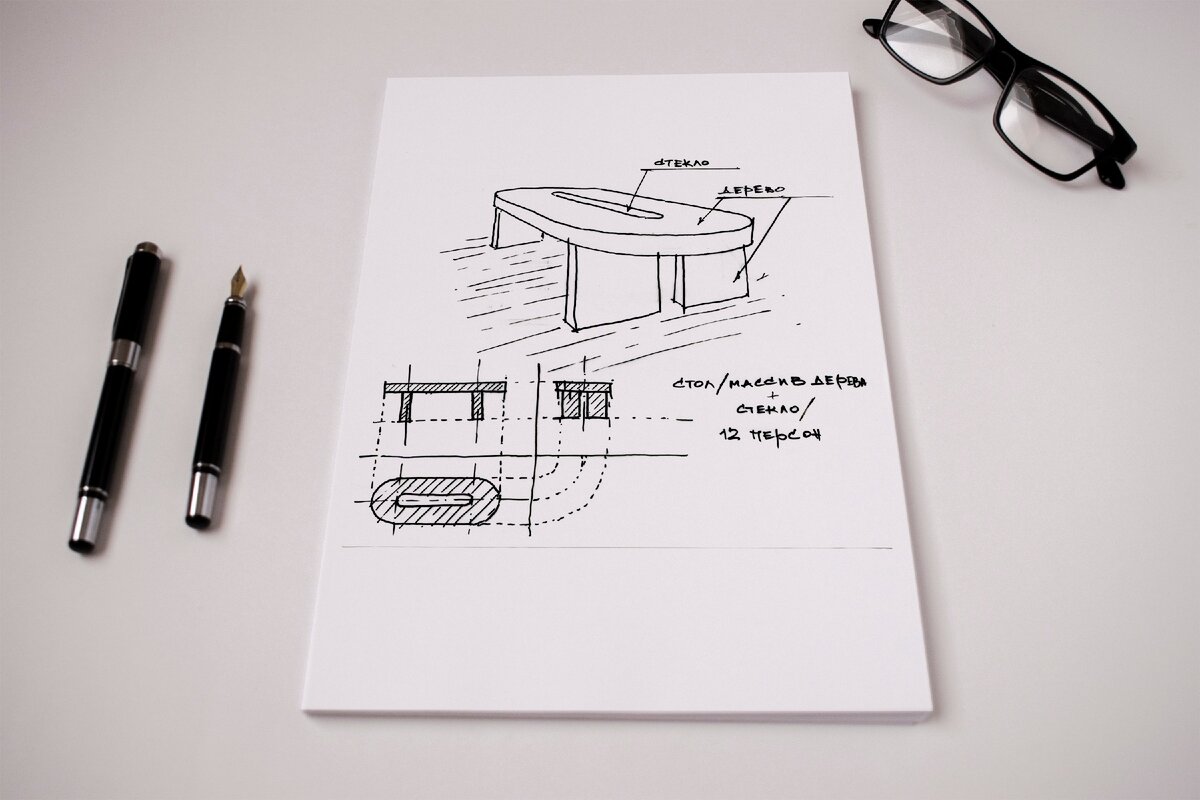 СТЕКЛО
ДЕРЕВО
СТОЛ/МАССИВ ДЕРЕВА
+
СТЕКЛО/
12 ПЕРСОН